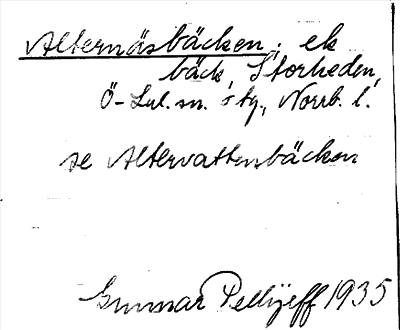 Alternäsbäcken, ek
bäck, Storheden,
Ö-Lul. sn. o tg., Norrb. l.
se Altervattensbäcken
Gunnar Pellijeff 1935